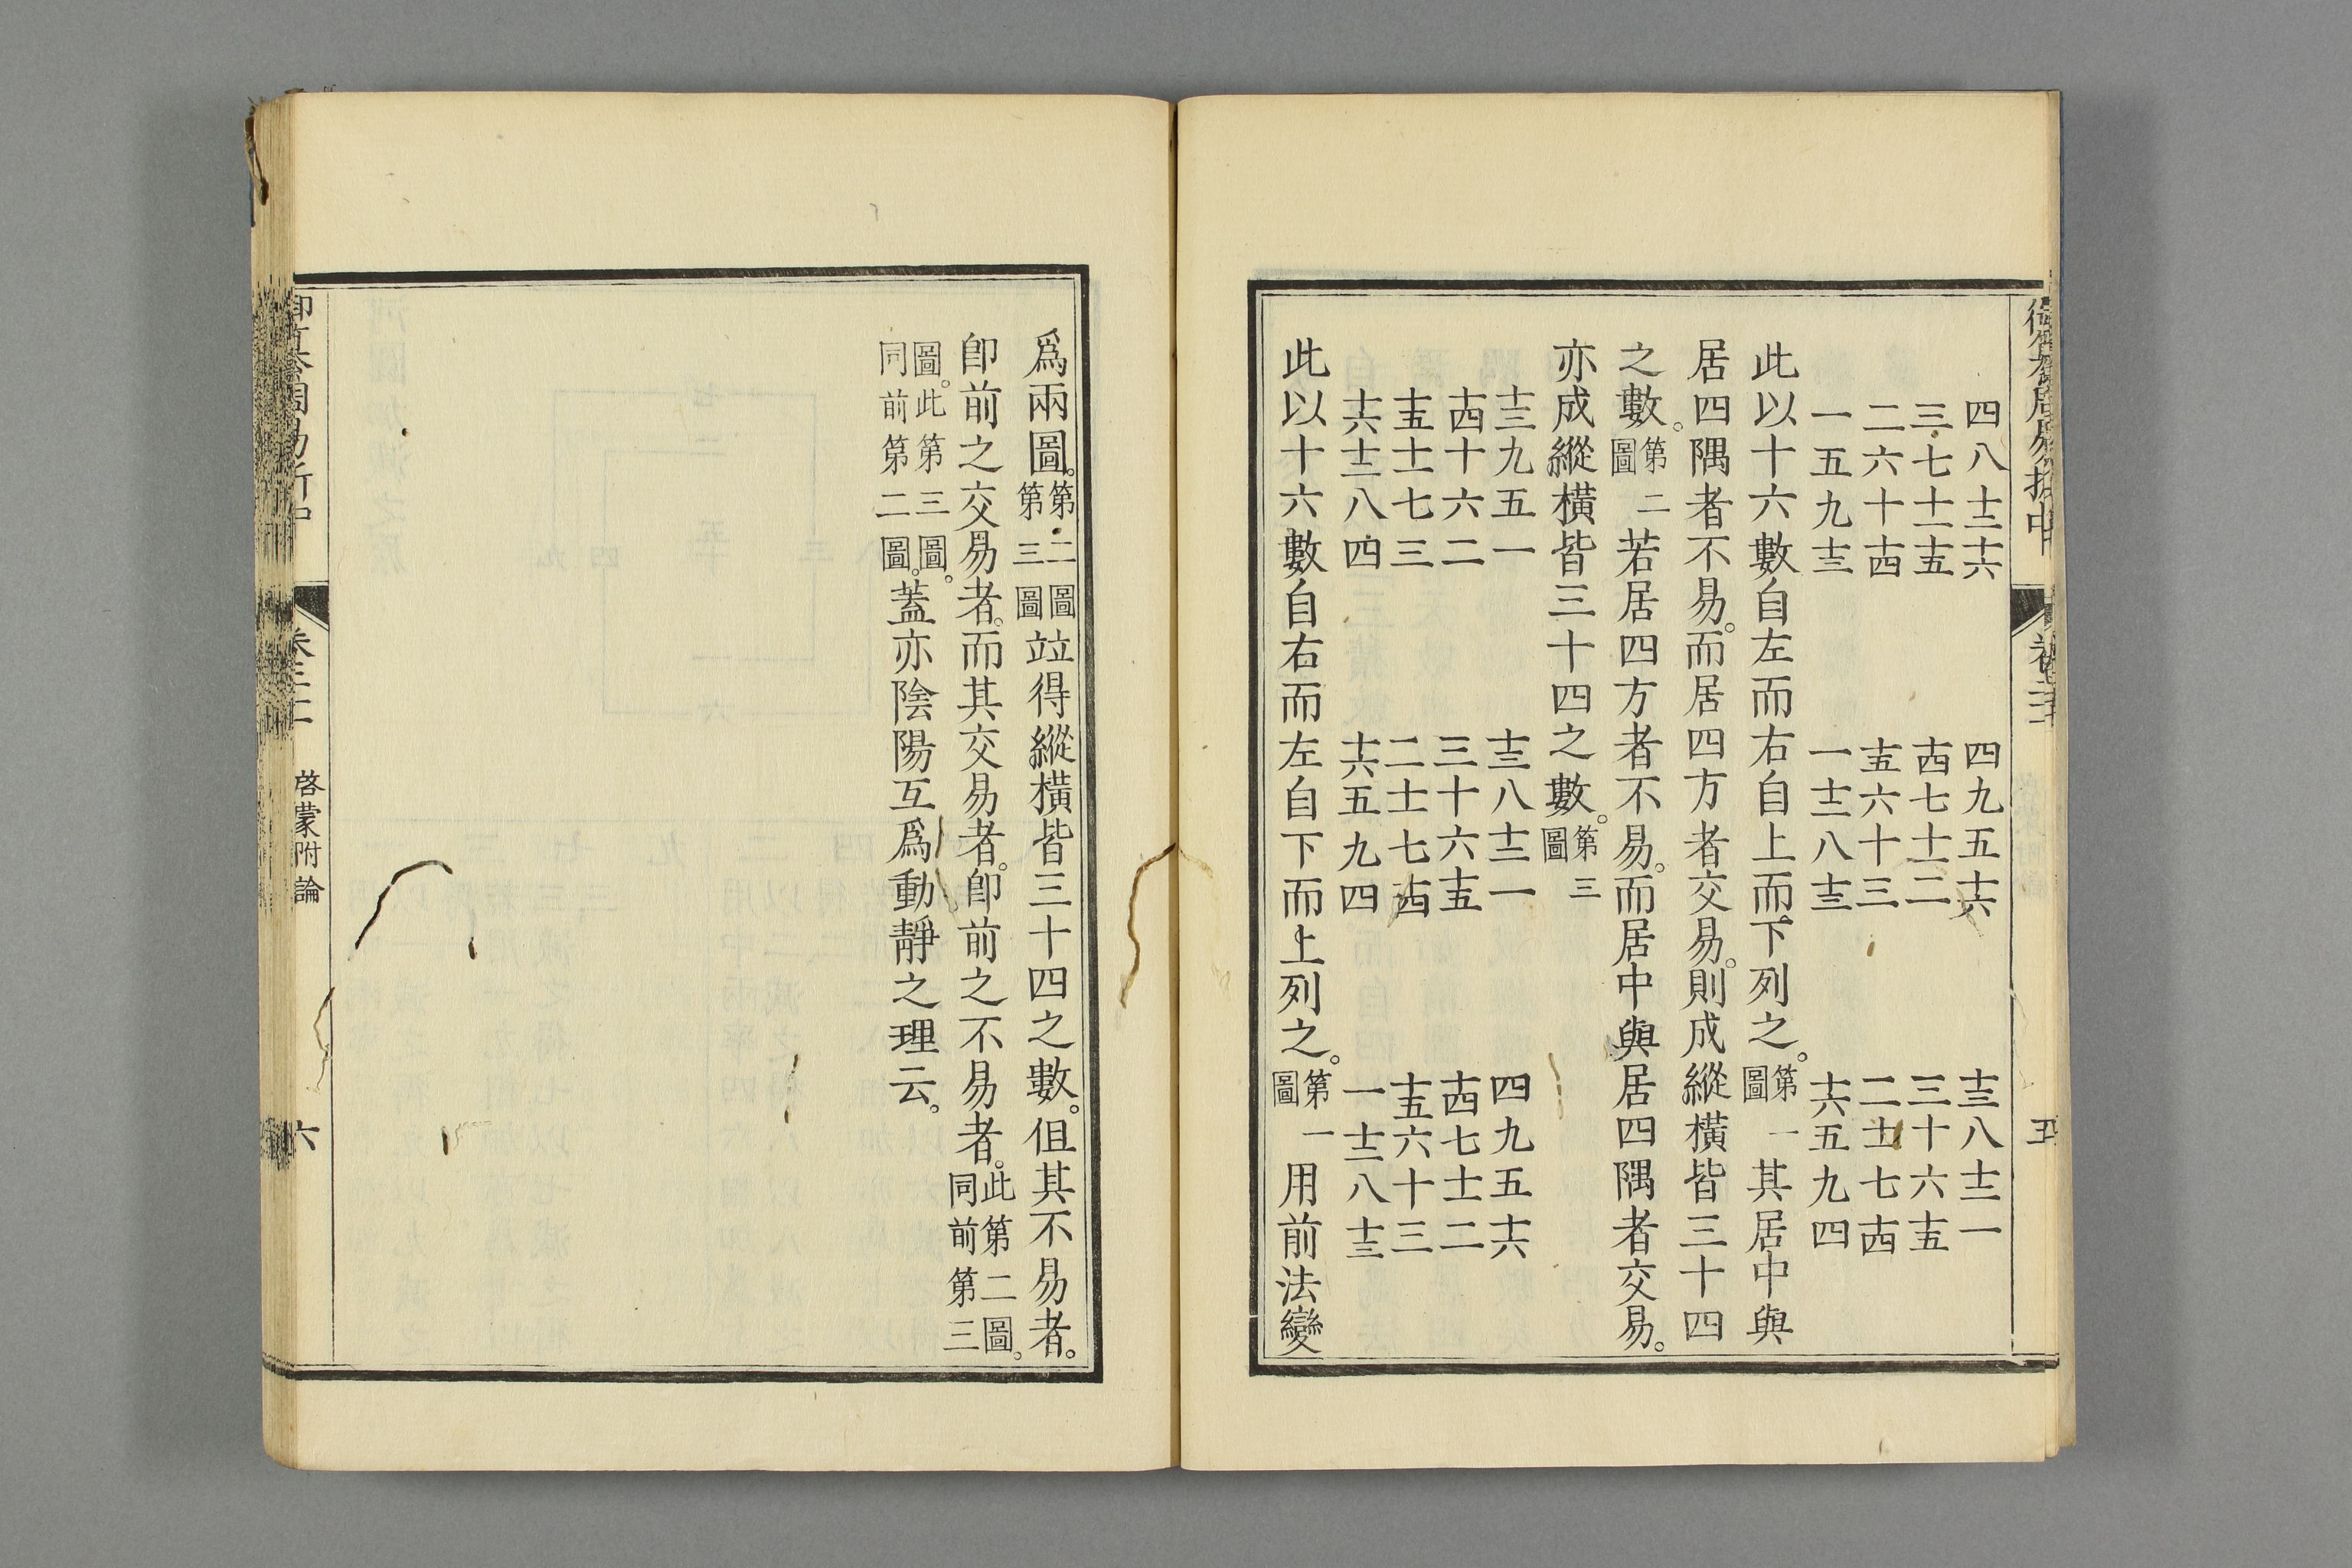 五
四八十二十六　四九五十六　十三八十二一
三七十一十五　十四七十一二　三十六十五
二六十十四　十五六十三　二十一七十四
一五九十三　一十二八十三　十六五九四
此以十六數自左而右自上而下列之。第一圖其居中與
居四隅者不易。而居四方者交易。則成縱橫皆三十四
之數。第二圖若居四方者不易。而居中與居四隅者交易。
亦成縱橫皆三十四之數。第三圖
十三九五一　十三八十二一　四九五十六
十四十六二　三十六十五　十四七十一二
十五十一七三　二十一七十四　十五六十三
十六十二八四　十六五九四　一十二八十三
此以十六數自右而左自下而上列之。第一圖用前法變
爲兩圖。第二圖第三圖竝得縱橫皆三十四之數。但其不易者。
卽前之交易者。而其交易者。卽前之不易者。此第二圖。同前第三
圖。此第三圖。同前第二圖。蓋亦陰陽互爲動靜之理云。
啓蒙附論
六